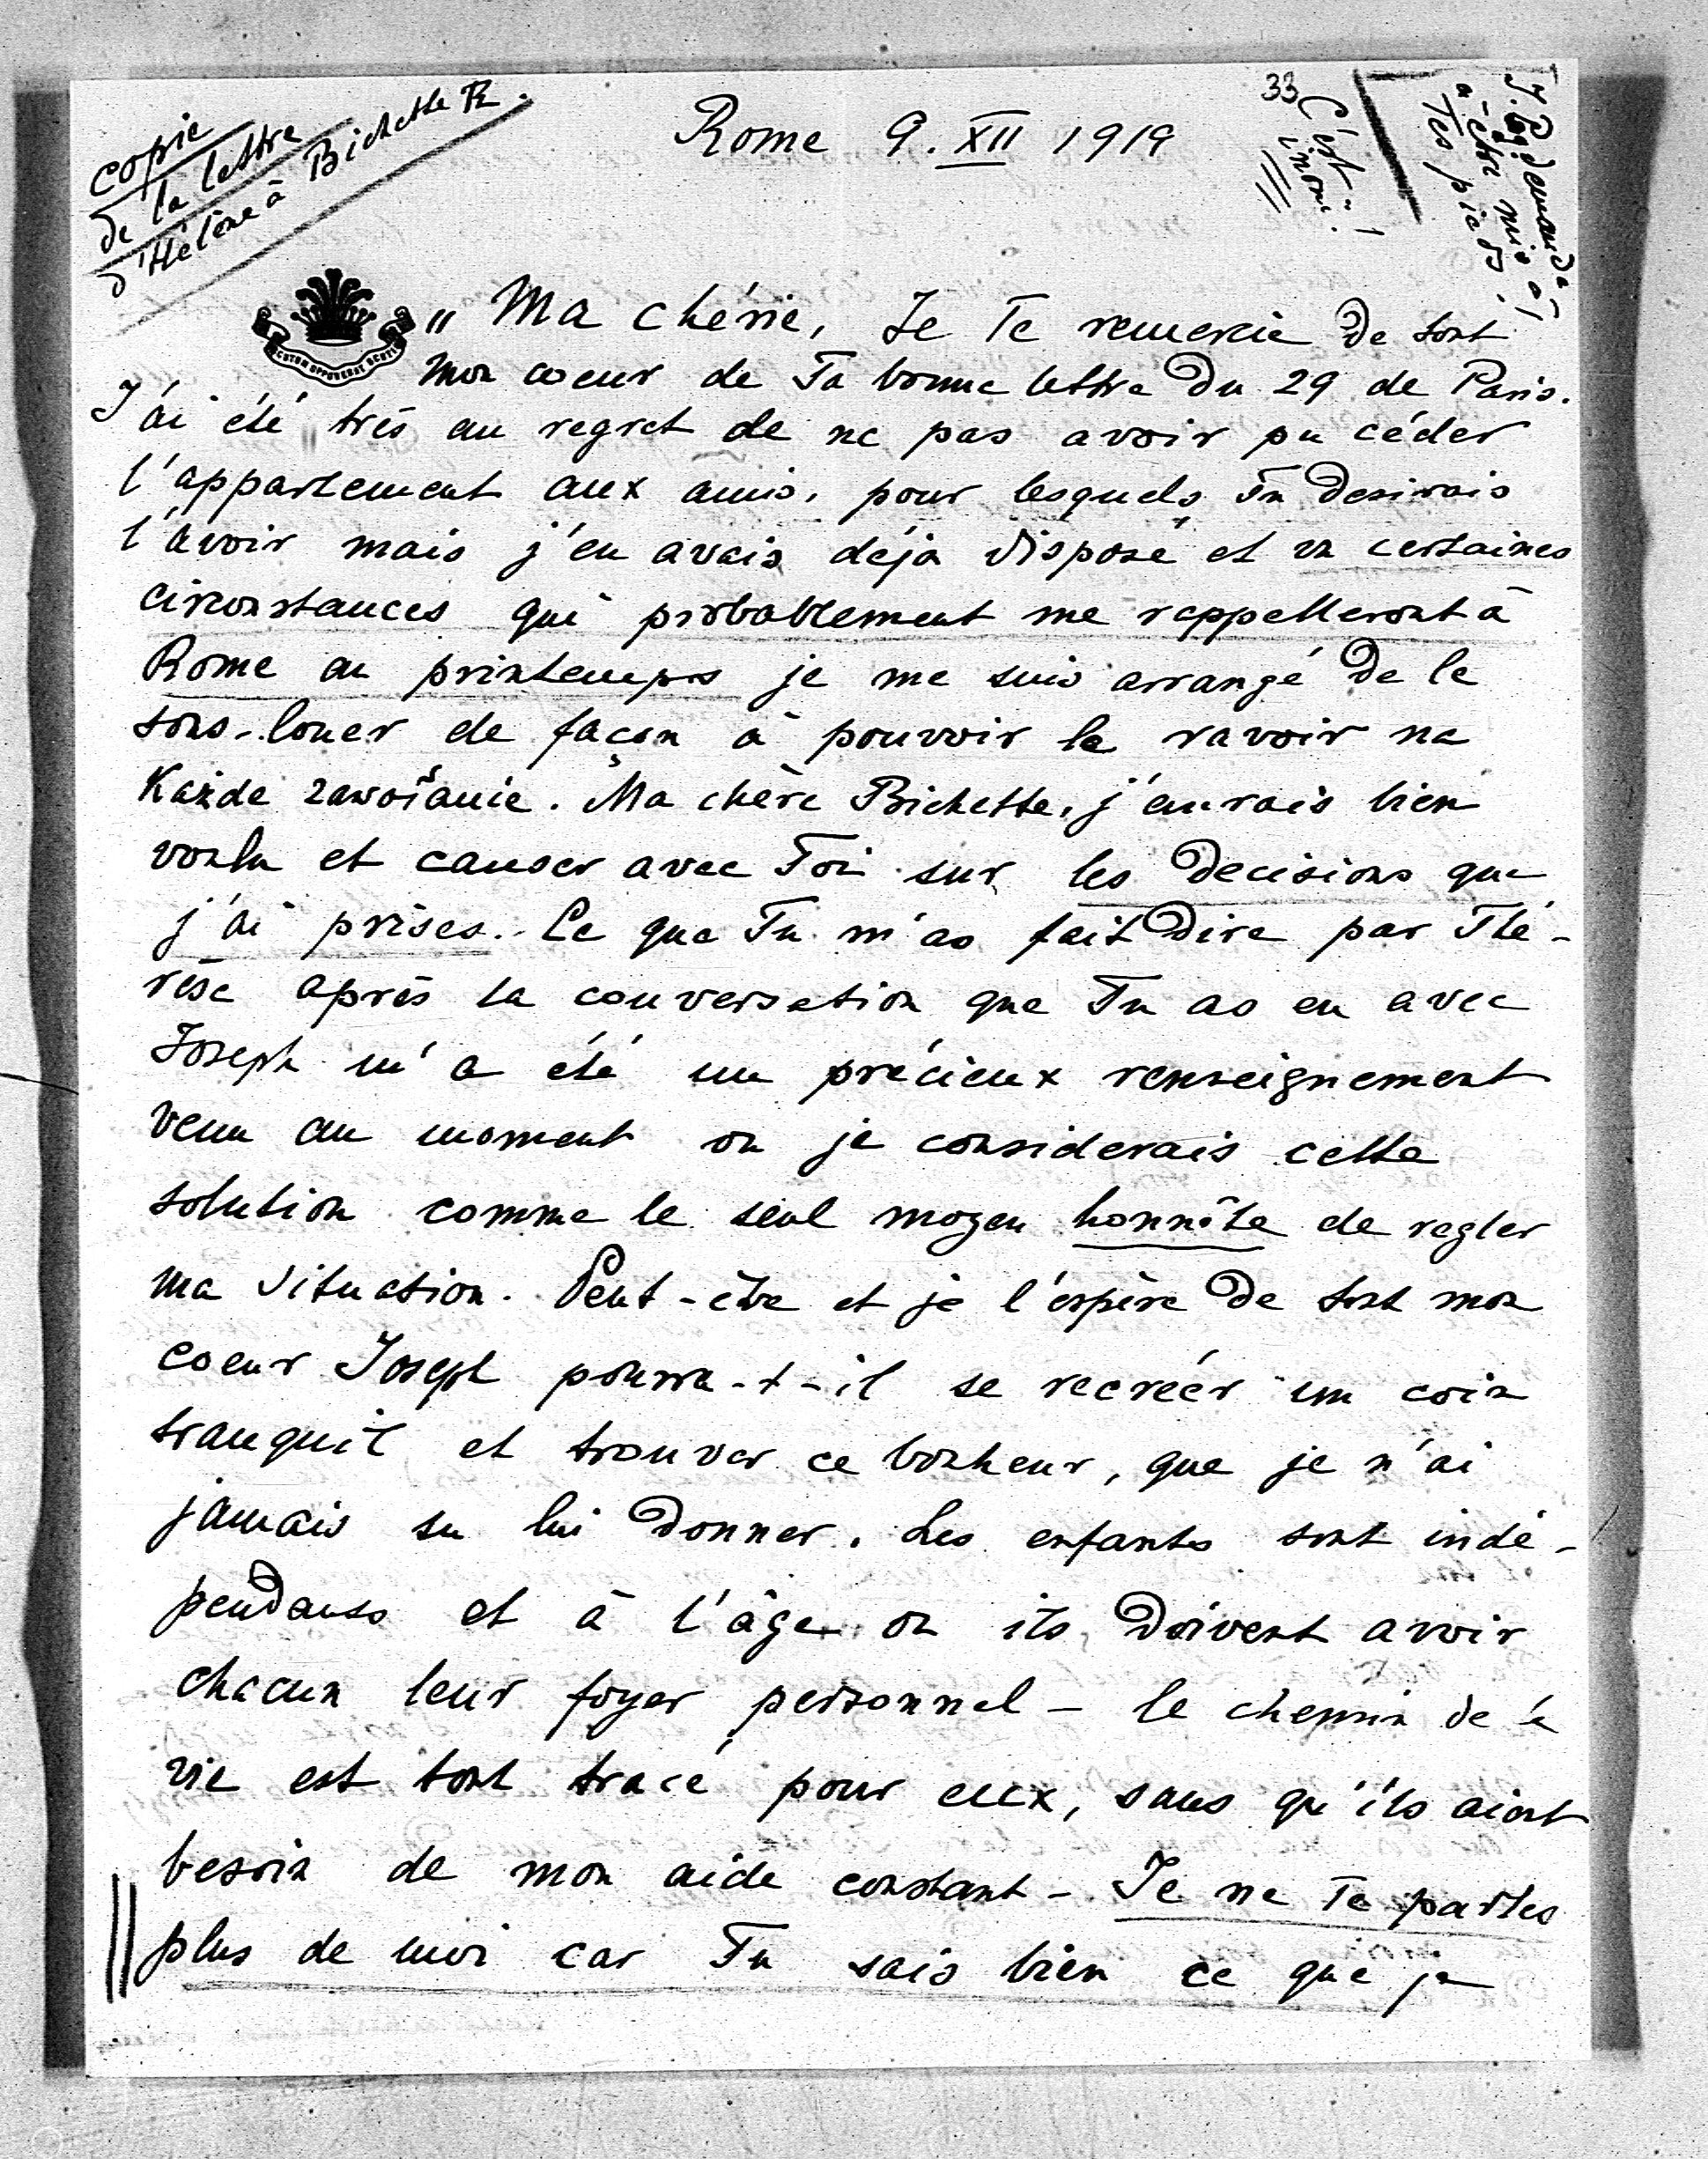 copie
de la lettre
d'Hélène à Bichette R.
Rome 9. XII 1919
33
C'est
inoui!
à-être mis à
Tes pieds!
„ Ma chérie, Je Te remercie de tout
mon coeur de Ta bonne lettre du 29 de Paris.
J'ai été très au regret de ne pas avoir pu céder
l'appartement aux amis, pour lesquels Tu desirais
l'avoir mais j'en avais déjà disposé et vu certaines
circonstances qui probablement me rappelleront à
Rome au printemps je me suis arrangé de le
sous-louer de façon à pouvoir le ravoir na
każde zawołanie. Ma chère Bichette, j'aurais bien
voulu et causer avec Toi sur les decisions que
j'ai prises. Ce que Tu m'as fait dire par Thé-
rèse après la conversation que Tu as eu avec
Joseph m'a été un précieux renseignement
venu au moment ou je considerais cette
solution comme le seul moyen honnête de regler
ma situation. Peut-être et je l'espère de tout mon
coeur Joseph pourra-t-il se recréer un coin
tranquil et trouver ce bonheur, que je n'ai
jamais su lui donner. Les enfants sont indé-
pendants et à l'âge ou ils doivent avoir
chacun leur foyer personnel - le chemin de la
vie est tout tracé pour eux, sans qu'ils aient
besoin de mon aide constant - Je ne Te parles
plus de moi car Tu sais bien ce que je